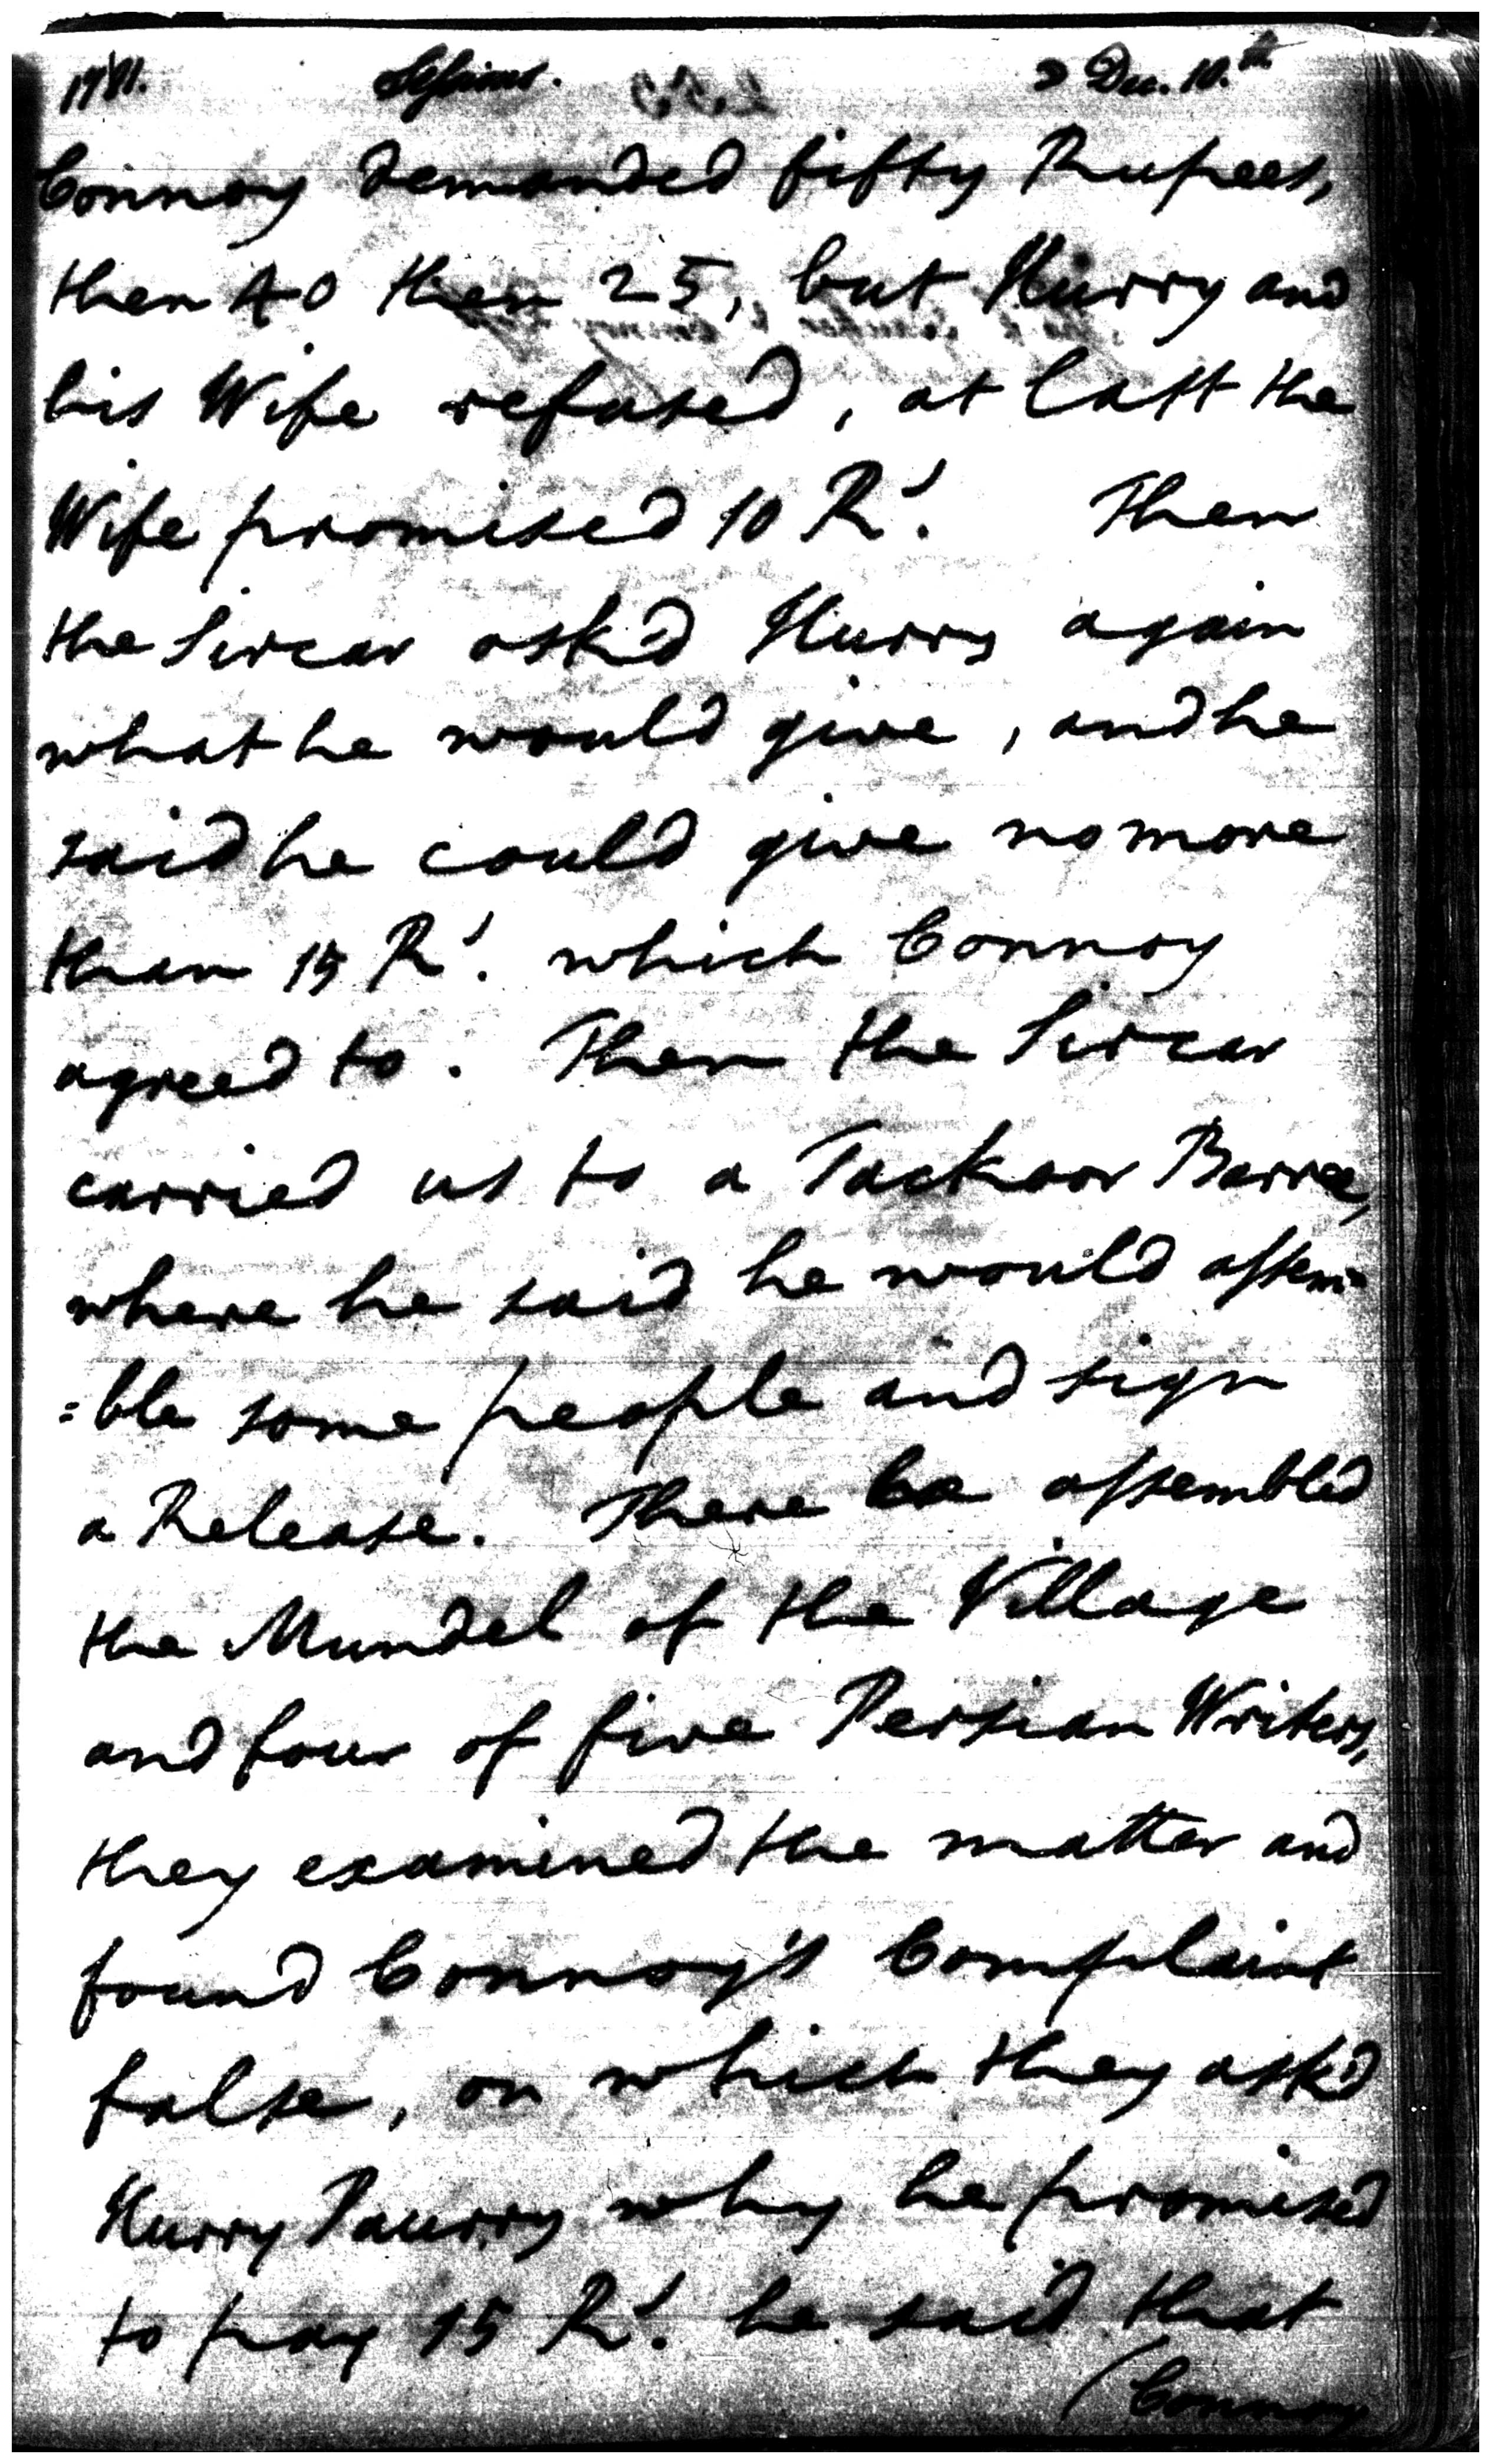 1781. Sessions. Dec. 10.th
Connoy demanded fifty Rupees,
then 40 then 25, but Hurry and
his Wife refused, at last the
Wife promised 10 Rs. Then
the Sircar ask'd Hurry again
what he would give, and he
said he could give no more
than 15 Rs. which Connoy
agreed to. Then the Sircar
carried us to a Tackoor Barree,
where he said he would assem=
=ble some people and sign
a Release. There he assembled
the Mundel of the Village
and four of five Persian Writers,
they examined the matter and
found Connoy's Complaint
false, on which they ask'd
Hurry Paurry why he promised
to pay 15 Rs. he said that
(Connoy